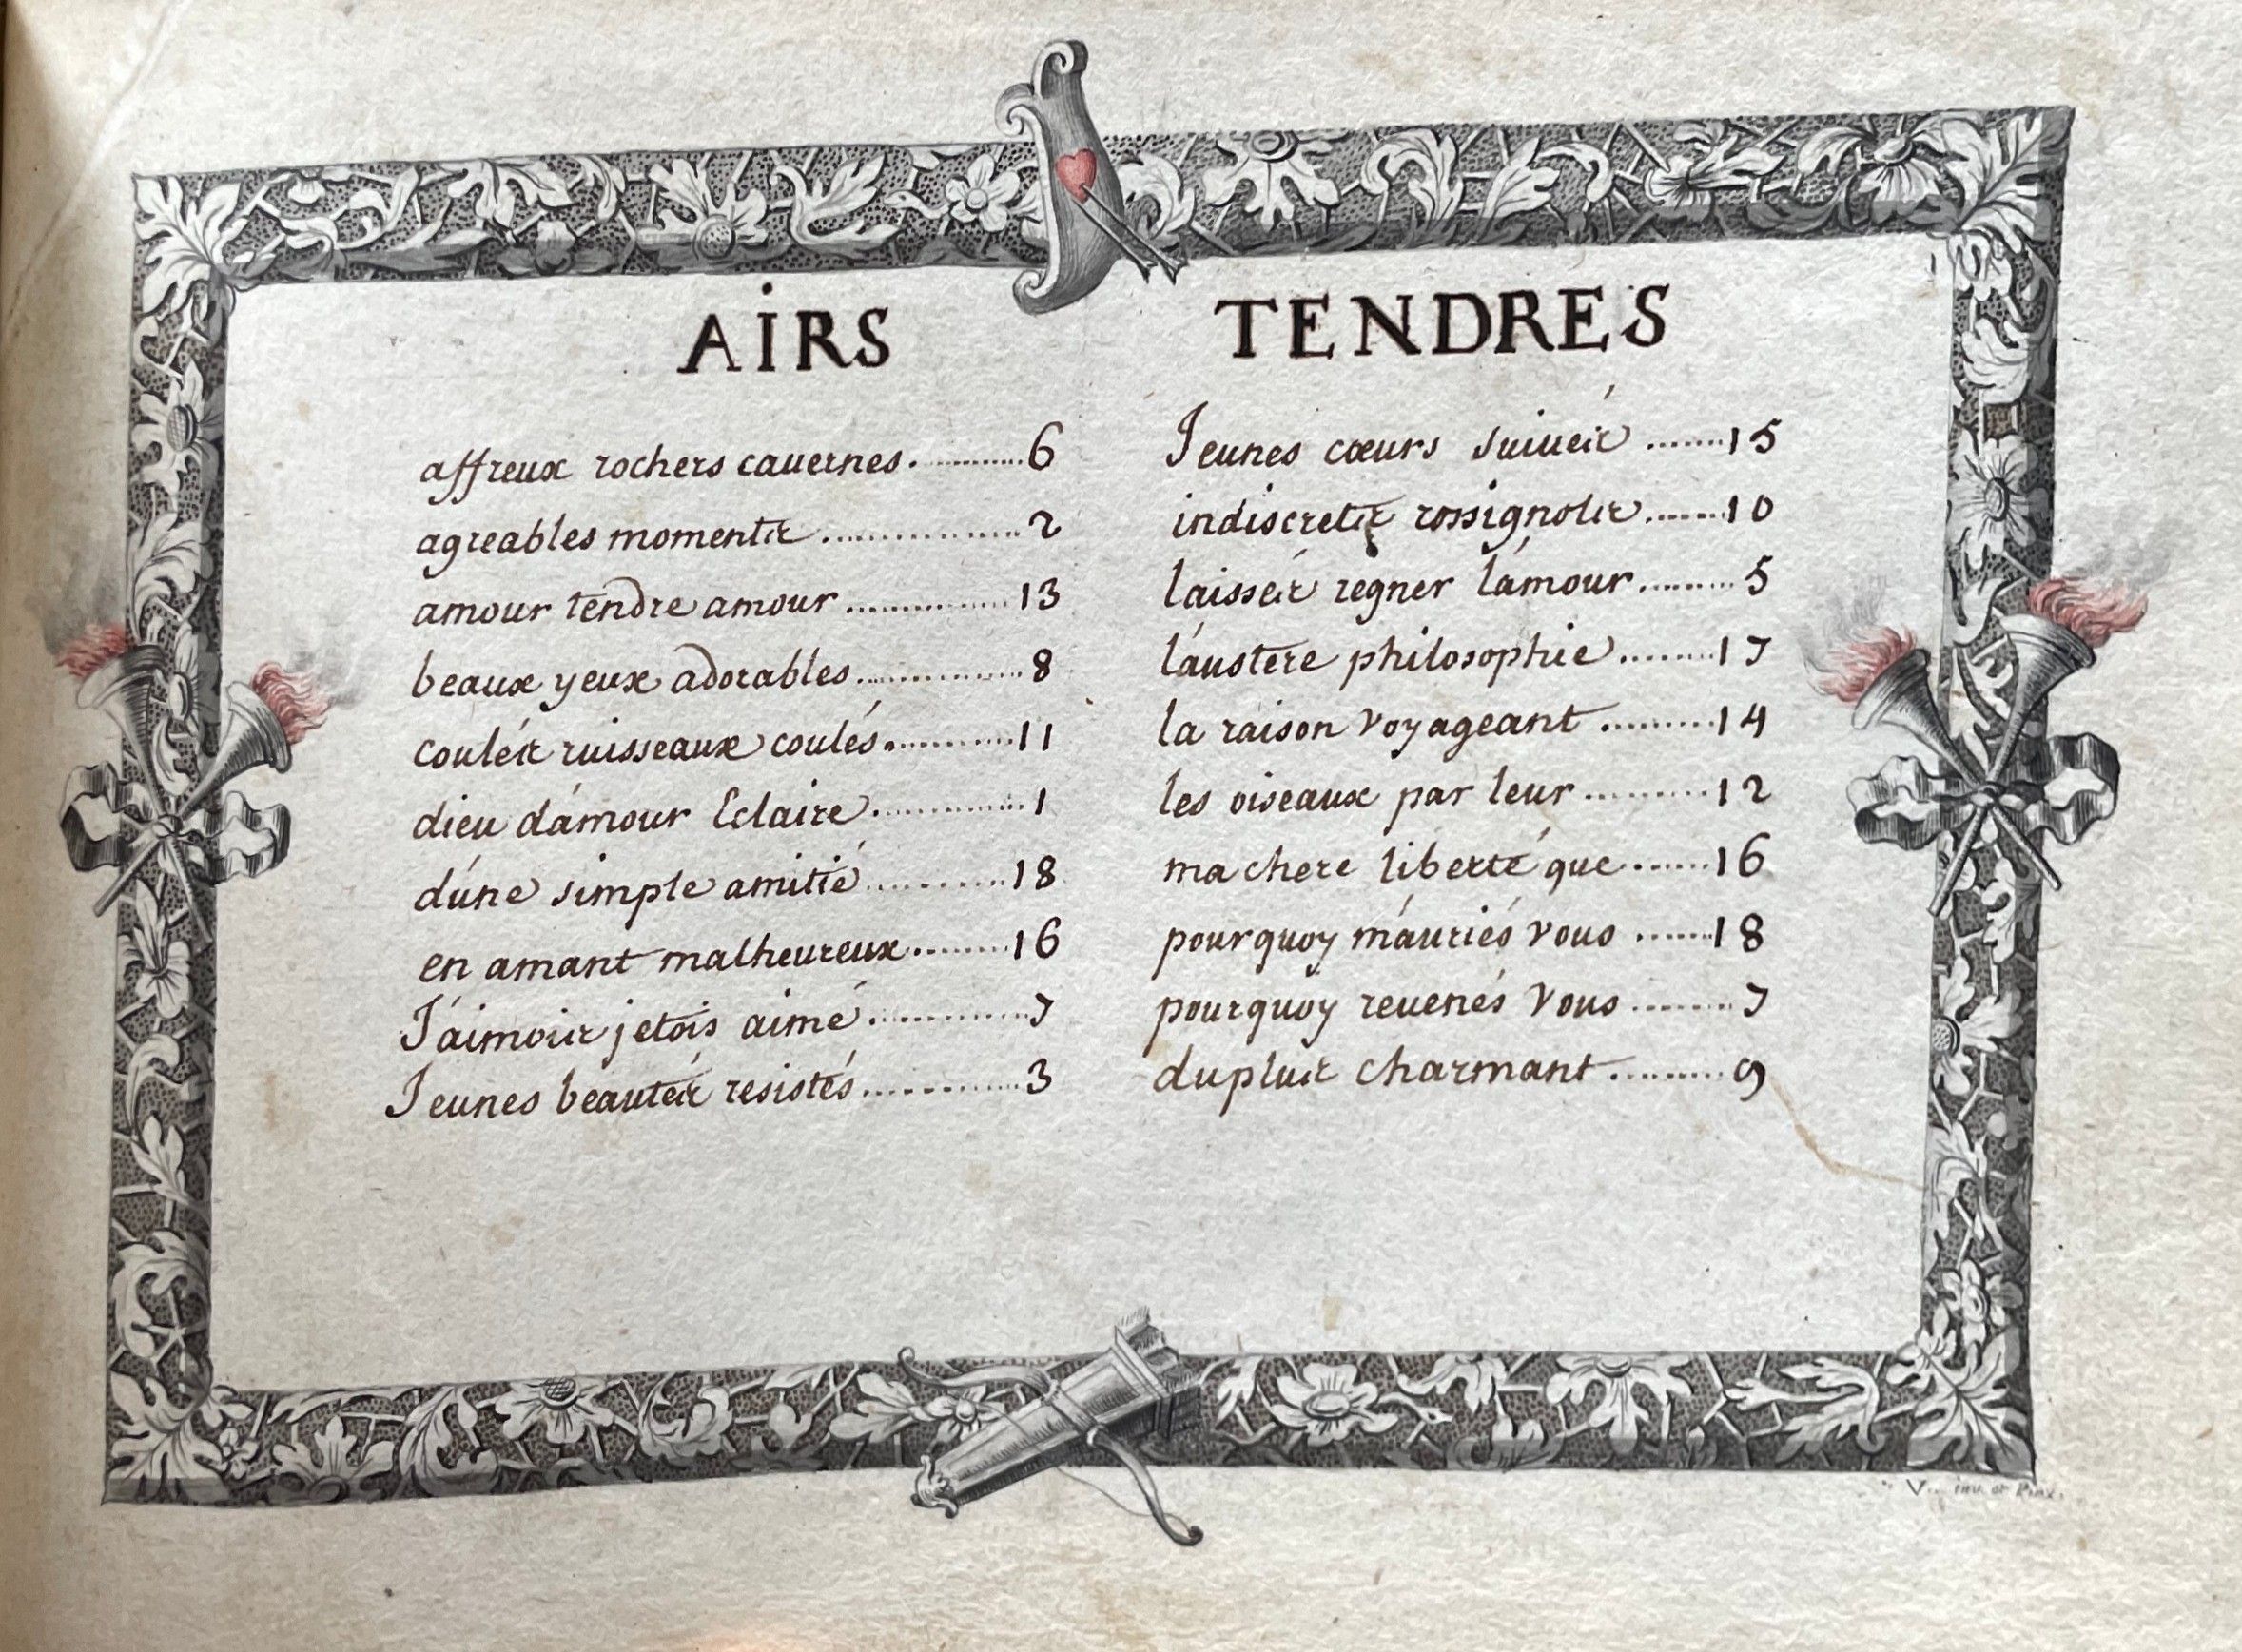 AIRS TENDRES
affreux rochers cauernes............6
agreables moments...............2
amour tendre amour..............13
beaux yeux adorables..............8
coulés ruisseaux coulés............11
dieu d'amour Eclaire..............1
d'une simple amitié............18
en amant malheureux........16
J'aimois jetois aimé............7
Jeunes beautés resistés............3
Jeunes cœurs suiués.......15
indiscrets rossignols.......10
laissés regner l'amour.........5
l'austere philosophie........17
la raison voyageant.........14
les oiseaux par leur.........12
ma chere liberté que.......16
pourquoy m'auriés vous.......18
pourquoy reuenés vous........7
du plus charmant.........9
V... inv. et Pinx.